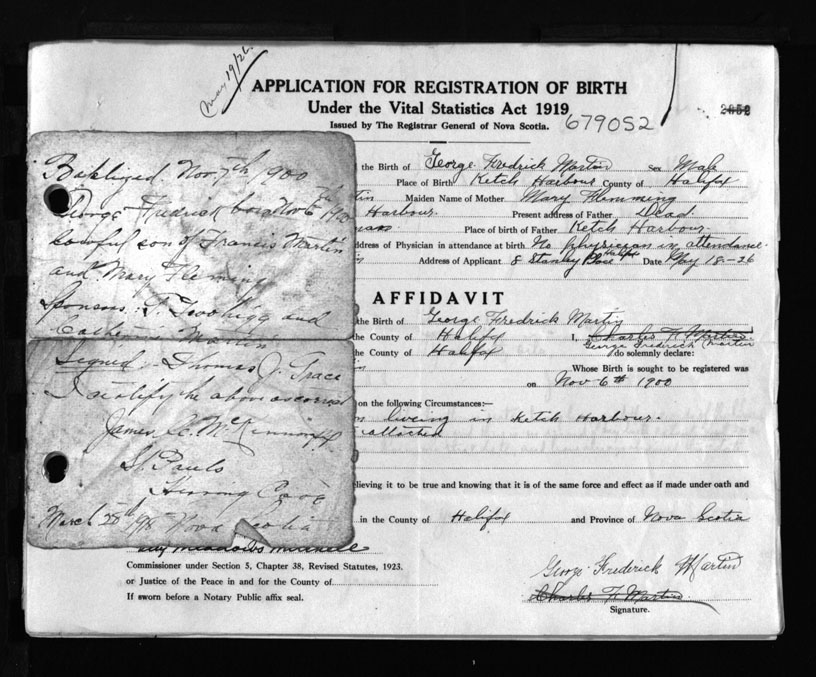 May 19/26
APPLICATION FOR REGISTRATION OF BIRTH
Under the Vital Statistics Act 1919
Issued by The Registrar General of Nova Scotia.
679052
Baktized Nov. 7th 1900
George Fredrick born Nov 6th 1900
lawful son of Francis Martin
and Mary Fleming
Sponsors: and
Catherine Martin
Signed: Thomas J.
I certify the above as correct
James
S. Pauls
Herring Cove
March 28th Nova Scotia
the Birth of George Fredrick Martin Sex Male
Place of Birth Ketch Harbour County of Halifax
Maiden Name of Mother Mary Flemming
Harbour. Present address of Father Dead.
Place of birth of Father Ketch Harbour
ddress of Physician in attendance at birth No physician in attendance.
Address of Applicant 8 Stanley Place Halifax Date May 18-26
AFFIDAVIT
the Birth of George Fredrick Martin
the County of Halifax I, Charles F. Martin
George Fredrick Martin
the County of Halifax do solemnly declare:
Whose Birth is sought to be registered was
on Nov 6th 1900
on the following Circumstances:—
liveing in Ketch Harbour.
attached
elieving it to be true and knowing that it is of the same force and effect as if made under oath and
in the County of Halifax and Province of Nova Scotia
Commissioner under Section 5, Chapter 38, Revised Statutes, 1923.
or Justice of the Peace in and for the County of
If sworn before a Notary Public affix seal.
George Fredrick Martin
Charles F Martin
Signature.